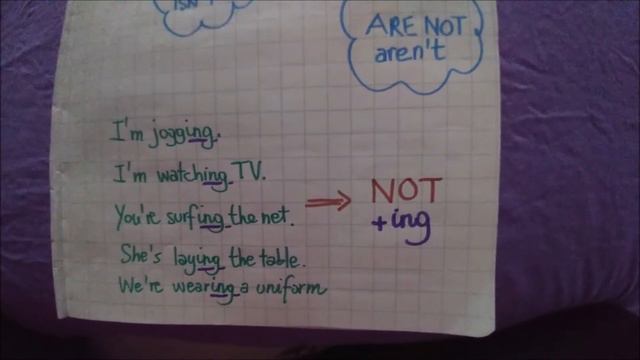 ISN'T
ARE NOT
aren't
I'm jogging.
I'm watching TV.
You're surfing the net.
She's laying the table.
We're wearing a uniform
NOT
+ing